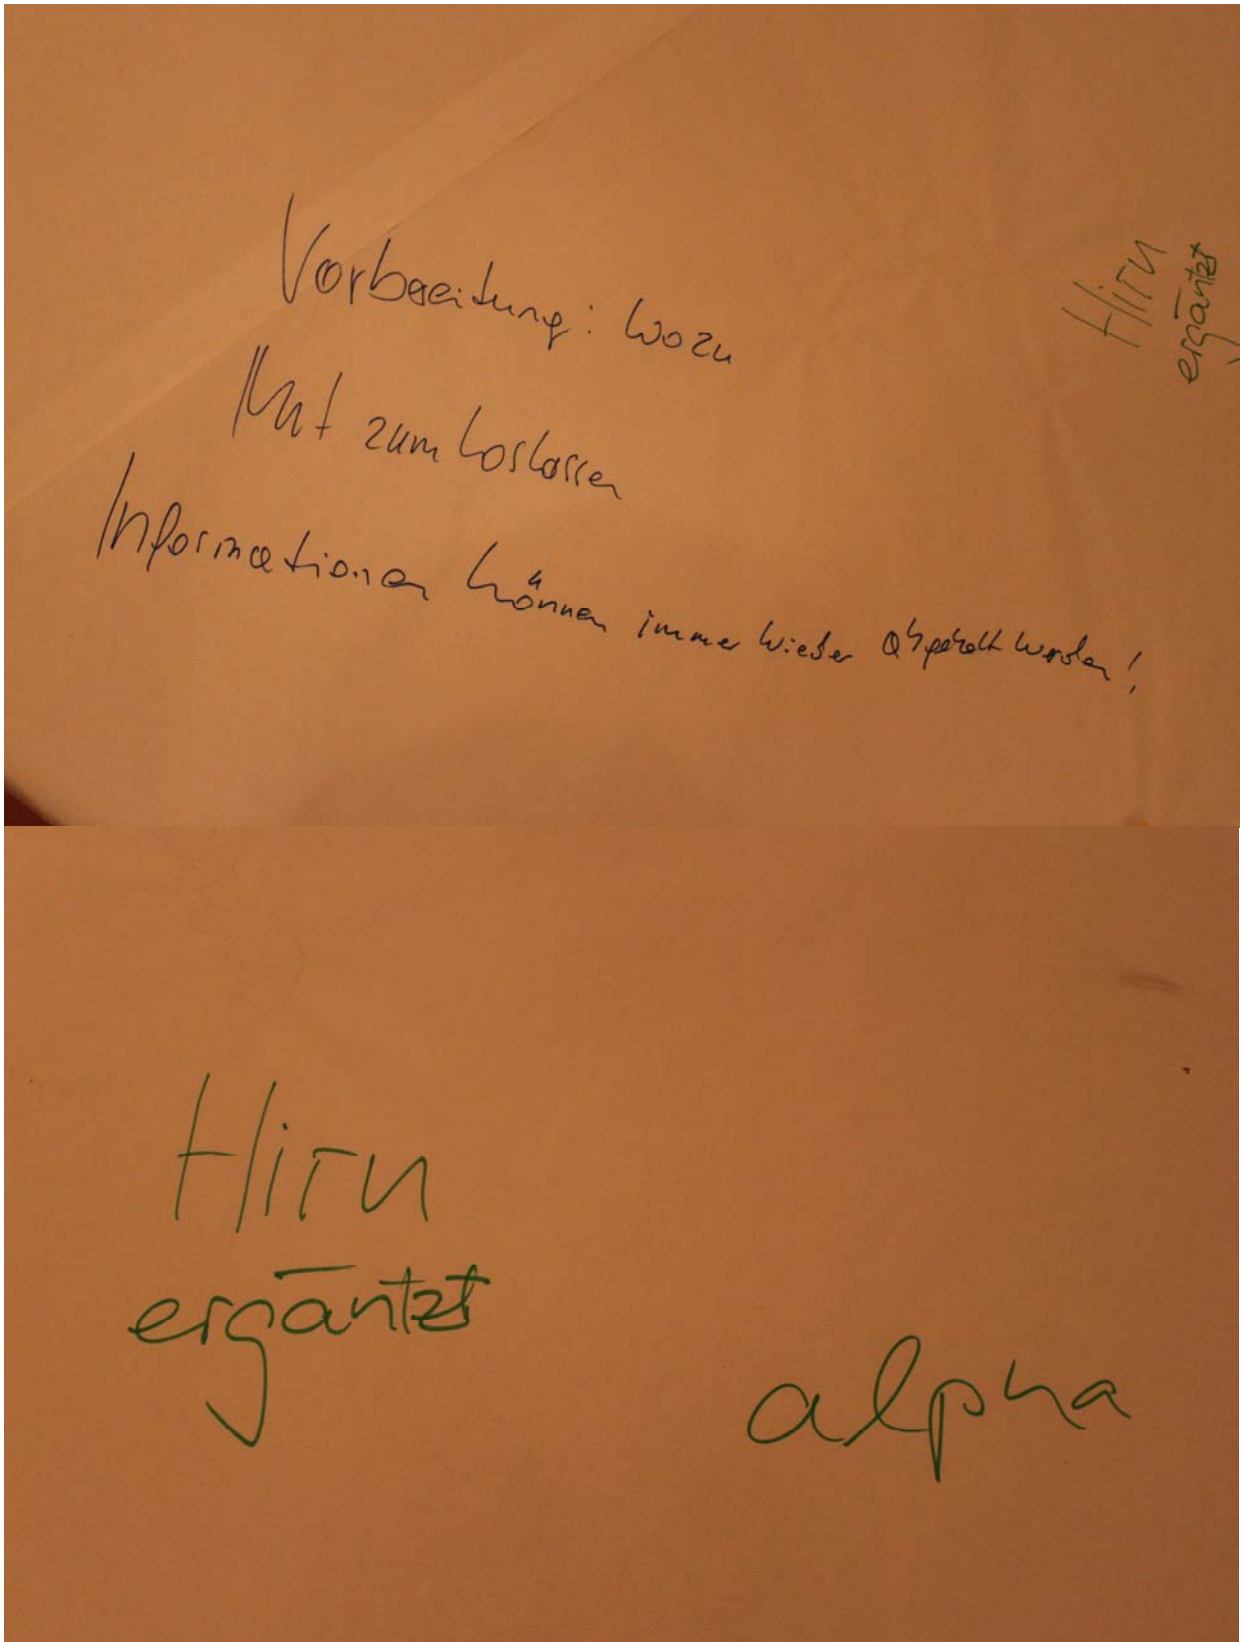 Vorbereitung: wozu
Mut zum Loslassen
Informationen können immer wieder abgeholt werden!
Hirn
ergäntzt
Hirn
ergäntzt
alpha